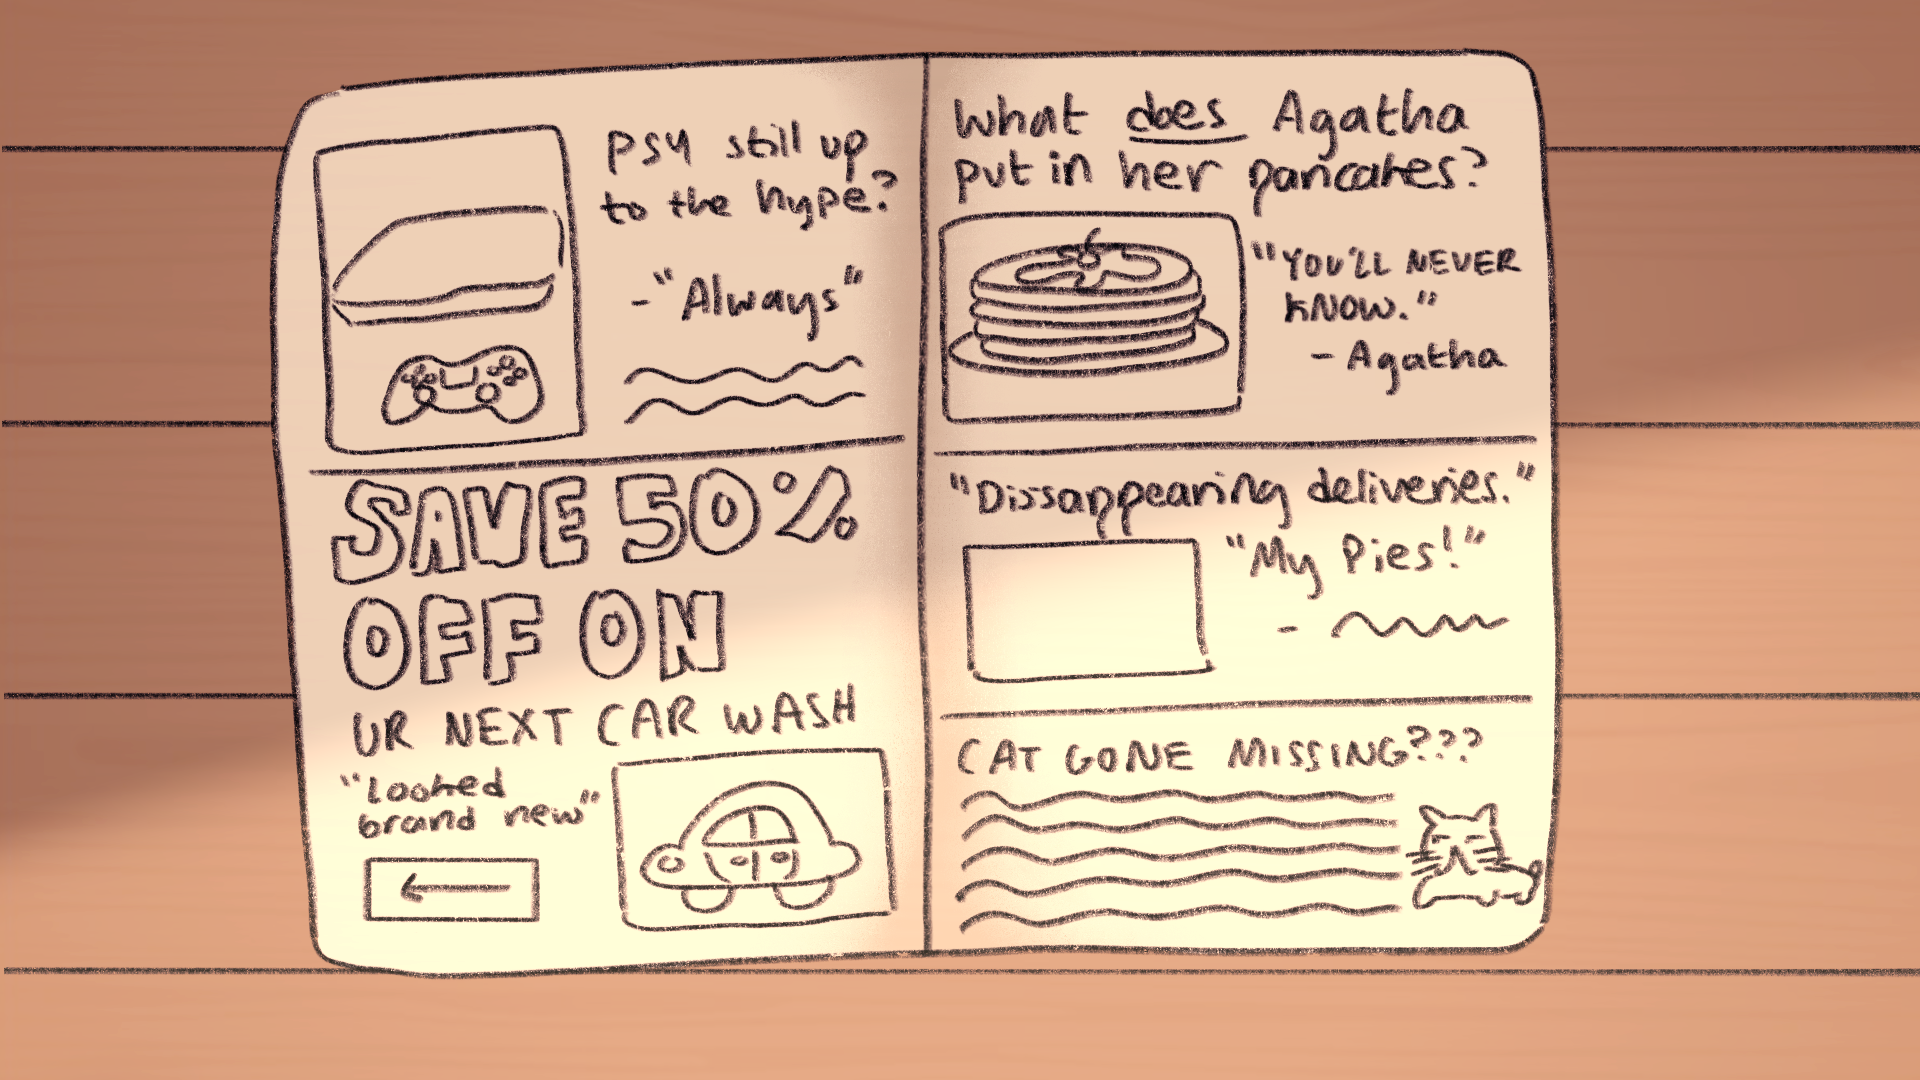 PS4 still up
to the hype?
-"Always"
SAVE 50%
OFF ON
UR NEXT CAR WASH
"Looked
brand new"
What does Agatha
put in her pancakes?
"YOU'LL NEVER
KNOW."
- Agatha
"Dissappearing deliveries."
"My Pies!"
-
CAT GONE MISSING???